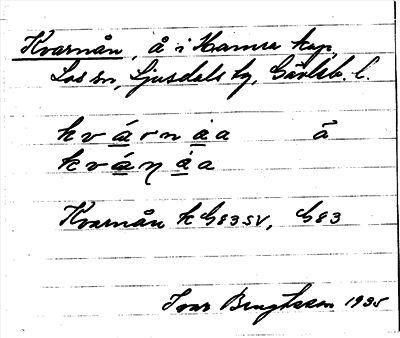 Kvarnån, å i Hamra kap,
Los sn, Ljusdals tg, Gävleb. l.
kvárnåa å
kváŋåa
Kvarnån k G83SV, G83
Ivar Bengtsson 1935